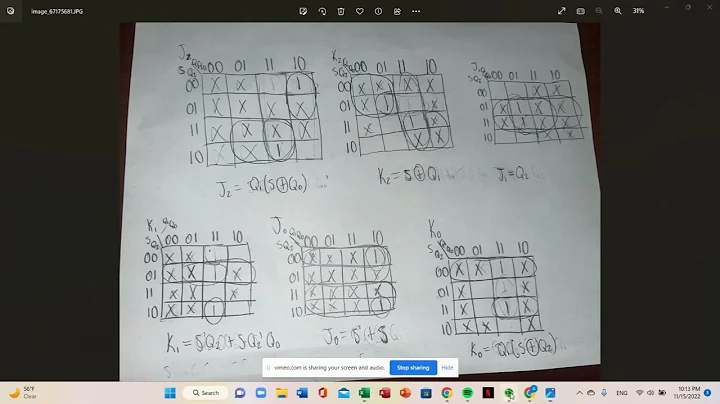 image_67175681.JPG
31%
J2 Q1Q0 00 01 11 10
SQ2
00 X X 1
01 X X X X
11 X X X X
10 X X 1
J2 = Q1(S⊕Q0)
K2 Q1Q0 00 01 11 10
SQ2
00 X X X X
01 X 1 X
11 X
10 X X
K2 = S⊕Q1
J1 Q1Q0 00 01 11 10
SQ2
00 X X
01
11
10 X X
J1 = Q2
K1 Q1Q0 00 01 11 10
SQ2
00 X X
01 X X X
11 X X X
10 X X 1
K1 = S'Q2' + SQ2'Q0
J0 Q1Q0 00 01 11 10
SQ2
00 X X X 1
01 X X X X
11 X X X X
10 X X X 1
J0 = S' + S
K0
SQ2 00 01 11 10
00 X X 1 X
01 X X
11 X 1 X
10 X X X
K0 = (S⊕Q2)
vimeo.com is sharing your screen and audio.
Stop sharing
Hide
56°F
Clear
Search
ENG
10:13 PM
11/15/2022